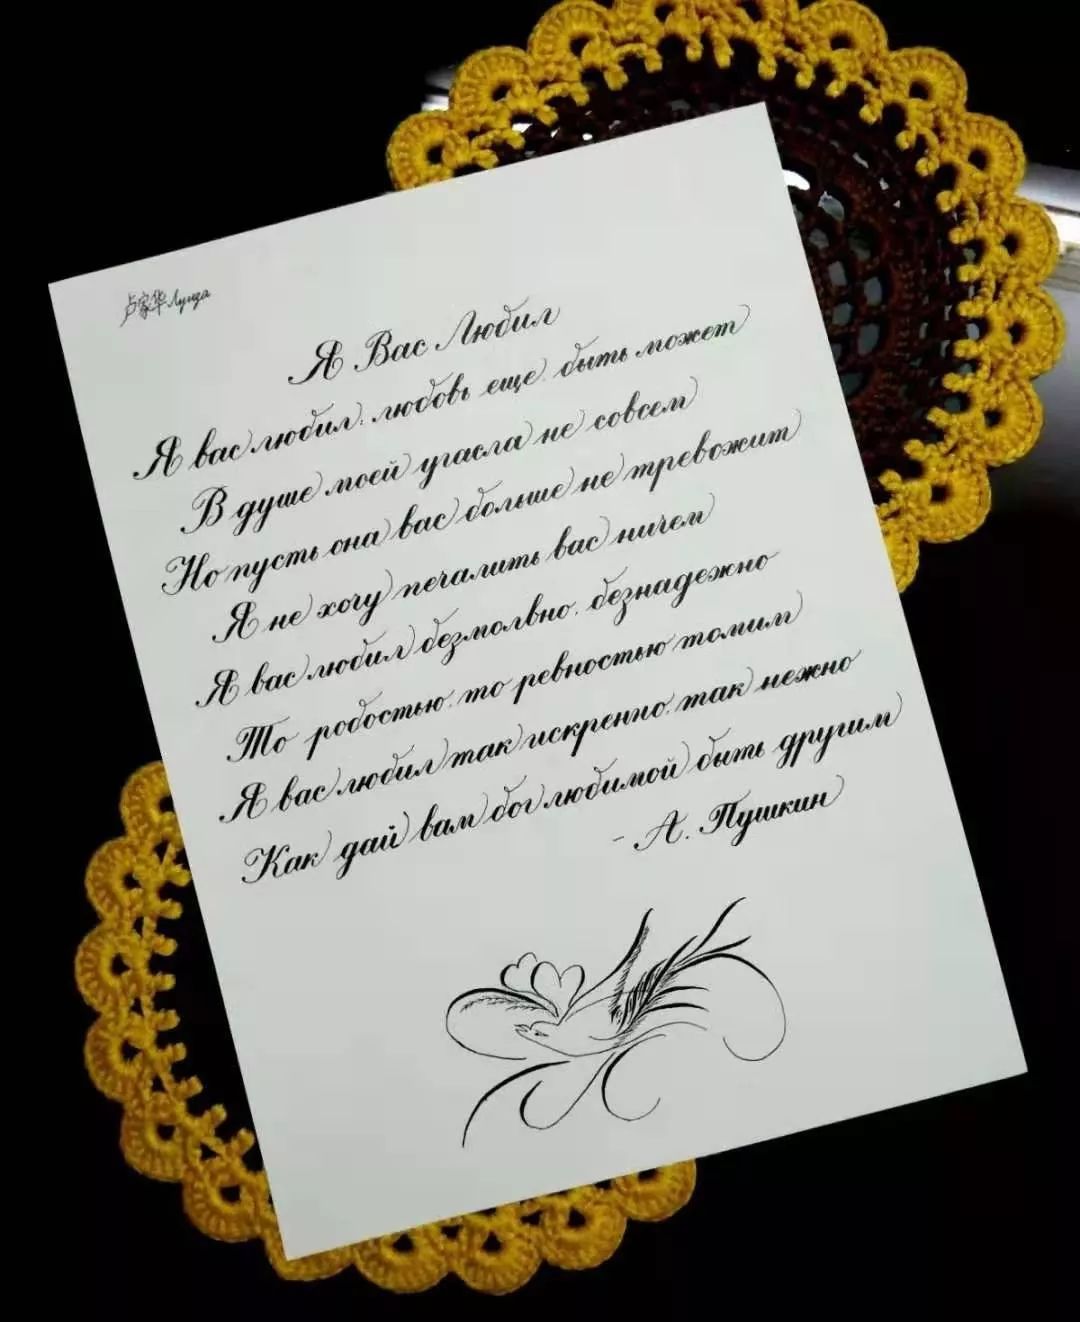 卢家华 Луиза
Я Вас Любил
Я вас любил: любовь еще, быть может
В душе моей угасла не совсем
Но пусть она вас больше не тревожит
Я не хочу печалить вас ничем
Я вас любил безмолвно, безнадежно
То робостью, то ревностью томим
Я вас любил так искренно, так нежно
Как дай вам бог любимой быть другим
- А. Пушкин